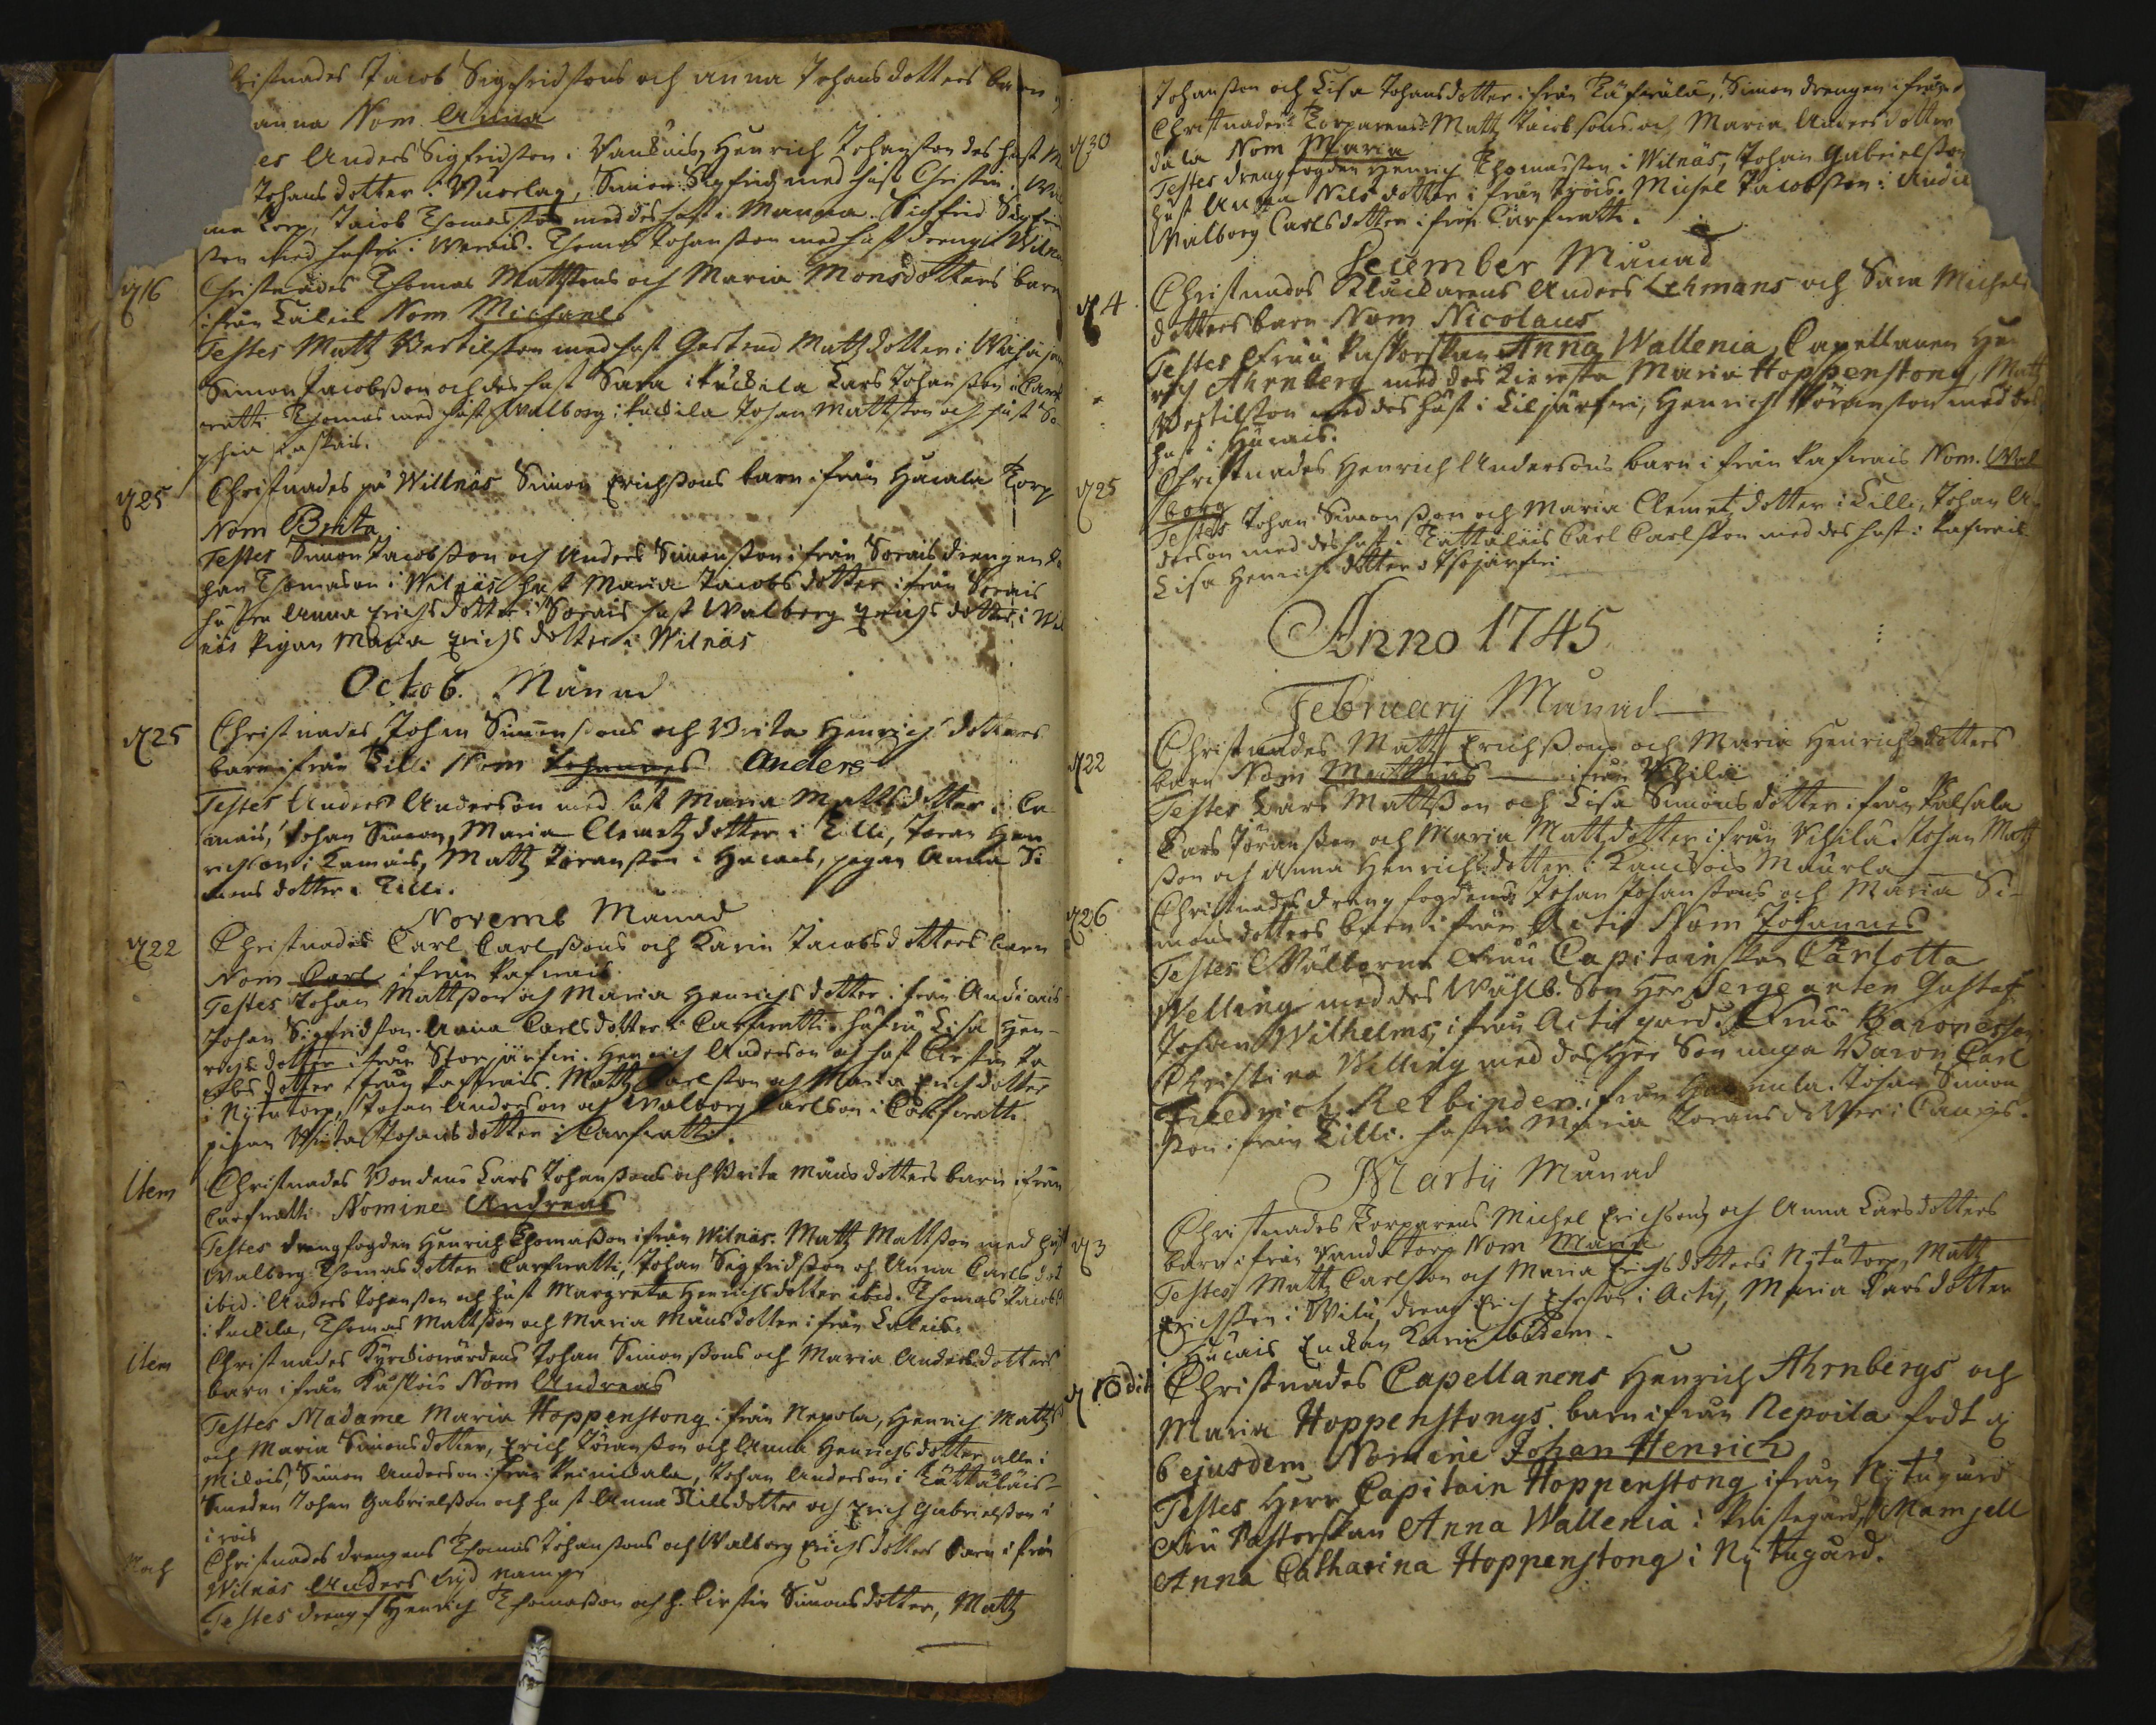 Christnades Jacob Sigfridsons och Anna Johansdotters barn
anna Nom Anna
es Anders Sigfridsson i Henrich Johansson des hust
Johansdotter i Simon Sigfrids med hust Christin i
Torp, Jacob Thomasson med des hust i Manna. Sigfred
son med hustru i Thomas Johansson med hust dräng i Wilnä
d 16 Christnades Thomas Mattssons och Maria Monsdotters barn
ifrån Laleis Nom Michael
Testes Matts Bertilsson med hust Gertrud Mattzdotter i
Simon Jacobsson och des hust Sara i Puckila Lars Johansson i Carf
ratti Thomas med hust Walborg i Puckila Johan Mattsson och hust So
phia
d 25 Christnades på Willnäs Simon Erichssons barn ifrån Torp
Nom Brita
Testes Simon Jacobsson och Anders Simonsson ifrån Sorais drengen Jo
han Thomason i Wilnäs hust Maria Jacobsdotter ifrån Sorais
hustru Anna Erichsdotter i Sorais hust Walborg Erichsdotter i Wil
näs Pigan Maria Erichsdotter i Wilnäs
Octob. Månad
d 25 Christnades Johan Simonsons och Brita Henrichsdotters
barn ifrån Lilli Nom Johannes Anders
Testes Anders Anderson med hust Maria Mattsdotter i Ca
mais, Johan Simon, Maria Clemetzdotter i Lilli, Joran Hen
richson i Kamais, Matts Joransson i Hucais, pigan Anna Si
monsdotter i Lilli.
Novemb Månad
d 22 Christnades Carl Carlssons och Karin Jacobsdotters barn
Nom Carl ifrån Pafwais
Testes Johan Mattsson och Maria Henrichsdotter ifrån Andiais
Johan Sigfridson. Anna Carlsdotter i Carfwatti. Lisa Hen-
richsdotter ifrån Storjärfwi. Henrich Anderson och hust Kirstin Ja
cobsdotter ifrån Pafwais. Matts Carlsson och Maria Erichsdotter
i Nytutorp, Johan Anderson och Walborg Carlson i Carfwatti
pigan Brita Johansdotter i Carfwatti.
Item Christnades Bondens Lars Johanssons och Brita Månsdotters barn ifrån
Carfwatti Nomine Andreas
Testes drengfogden Henrich Thomasson ifrån Wilnäs. Mattz Mattsson med hust
Walborg Thomasdotter i Carfwatti, Johan Sigfridsson och Anna Carlsdot
ibid. Anders Johansson och hust Margreta Henrichsdotter ibid. Thomas Jacobs
i Puckila, Thomas Mattsson och Maria Månsdotter ifrån Laleis.
Item Christnades Kyrckiowärdens Johan Simonssons och Maria Andersdotters
barn ifrån Kaskois Nom Andreas
Testes Madame Maria Hoppenstong ifrån Nepola, Henrich Mattz
och Maria Simonsdotter, Erich Joransson och Anna Henrichsdotter alle i
Milois, Simon Anderson ifrån Johan Anderson i Tattaläis-
Smeden Johan Gabrielsson och hust Anna Nilsdotter och Erich Gabrielsson i
irois
Noch Christnades drengens Thomas Johanssons och Walborg Erichsdotters barn ifrån
Wilnäs Anders wid namn
Testes drengf Henrich Thomasson och h. Kirstin Simonsdotter, Mattz
Johansson och Lisa Johansdotter ifrån Simon drengen ifrån
d 30 Christnades Torparens Mattz Jacobsons och Maria Andersdotter
dala Nom Maria
Testes drengfogden Henrich Thomasson i Wilnäs, Johan Gabrielsson
hust Anna Nilsdotter ifrån Irois. Michel Jacobsson i Andi
Walborg Carlsdotter ifrån Carfwatti.
December Månad
d 4. Christnades Klackarens Anders Lehmans och Sara Michels
dotters barn Nom Nicolaus
Testes Fruu Pastorskan Anna Wallenia, Capellanen Hen
rich Ahrnberg med des Kiæresta Maria Hoppenstong, Matts
Bertilsson med des hust i Liljärfwi, Henrich Joransson med des
hust i Hucais.
d 25 Christnades Henrich Andersons barn ifrån Pafwais Nom. Wal
borg
Testes Johan Simonsson och Maria Clemetzdotter i Lilli, Johan An
derson med des hust i Tattaläis Carl Carlsson med des hust i Pafwais
Lisa Henrichsdotter i
Anno 1745
February Månad
d 22 Christnades Mattz Erichssons och Maria Henrichsdotters
barn Nom Matthias ifrån Uhilu
Testes Lars Mattsson och Lisa Simonsdotter ifrån Palsala
Lars Joransson och Maria Mattzdotter ifrån Uhilu. Johan Matt
sson och Anna Henrichsdotter i
d 26 Christnades drengfogdens Johan Johanssons och Maria Si-
monsdotters barn ifrån Actis Nom Johannes
Testes Wälborne Fruu Capitainskan Carlotta
Welling med des Wählb. Son Herr Sergeanten Gustaf
Johan Wilhelms, ifrån Actis gård. Fruu Baronessan
Christina Welling med des Herr Son unga Baron Carl
Friedrich Rehbinder, ifrån Johan Simon
sson ifrån Lilli. hustru Maria Joransdotter i Camais.
Martij Månad
d 3 Christnades Torparens Michel Erichsons och Anna Larsdotters
barn ifrån Nom Maria
Testes Mattz Carlsson och Maria Erichsdotter i Nytutorp, Mattz
Erichsson i Wilu, dreng Erich Ersson i Actis, Maria Larsdotter
Hucais Enckan Karin ibidem.
d 10 dito Christnades Capellanens Henrich Ahrnbergs och
Maria Hoppenstongs barn ifrån Nepoila födt d
6 ejusdem Nomine Johan Henrich
Testes Herr Capitain Hoppenstong ifrån Nytugård
Fru Pastorskan Anna Wallenia i Prästegård, Mamsell
Anna Catharina Hoppenstong i Nytugård.